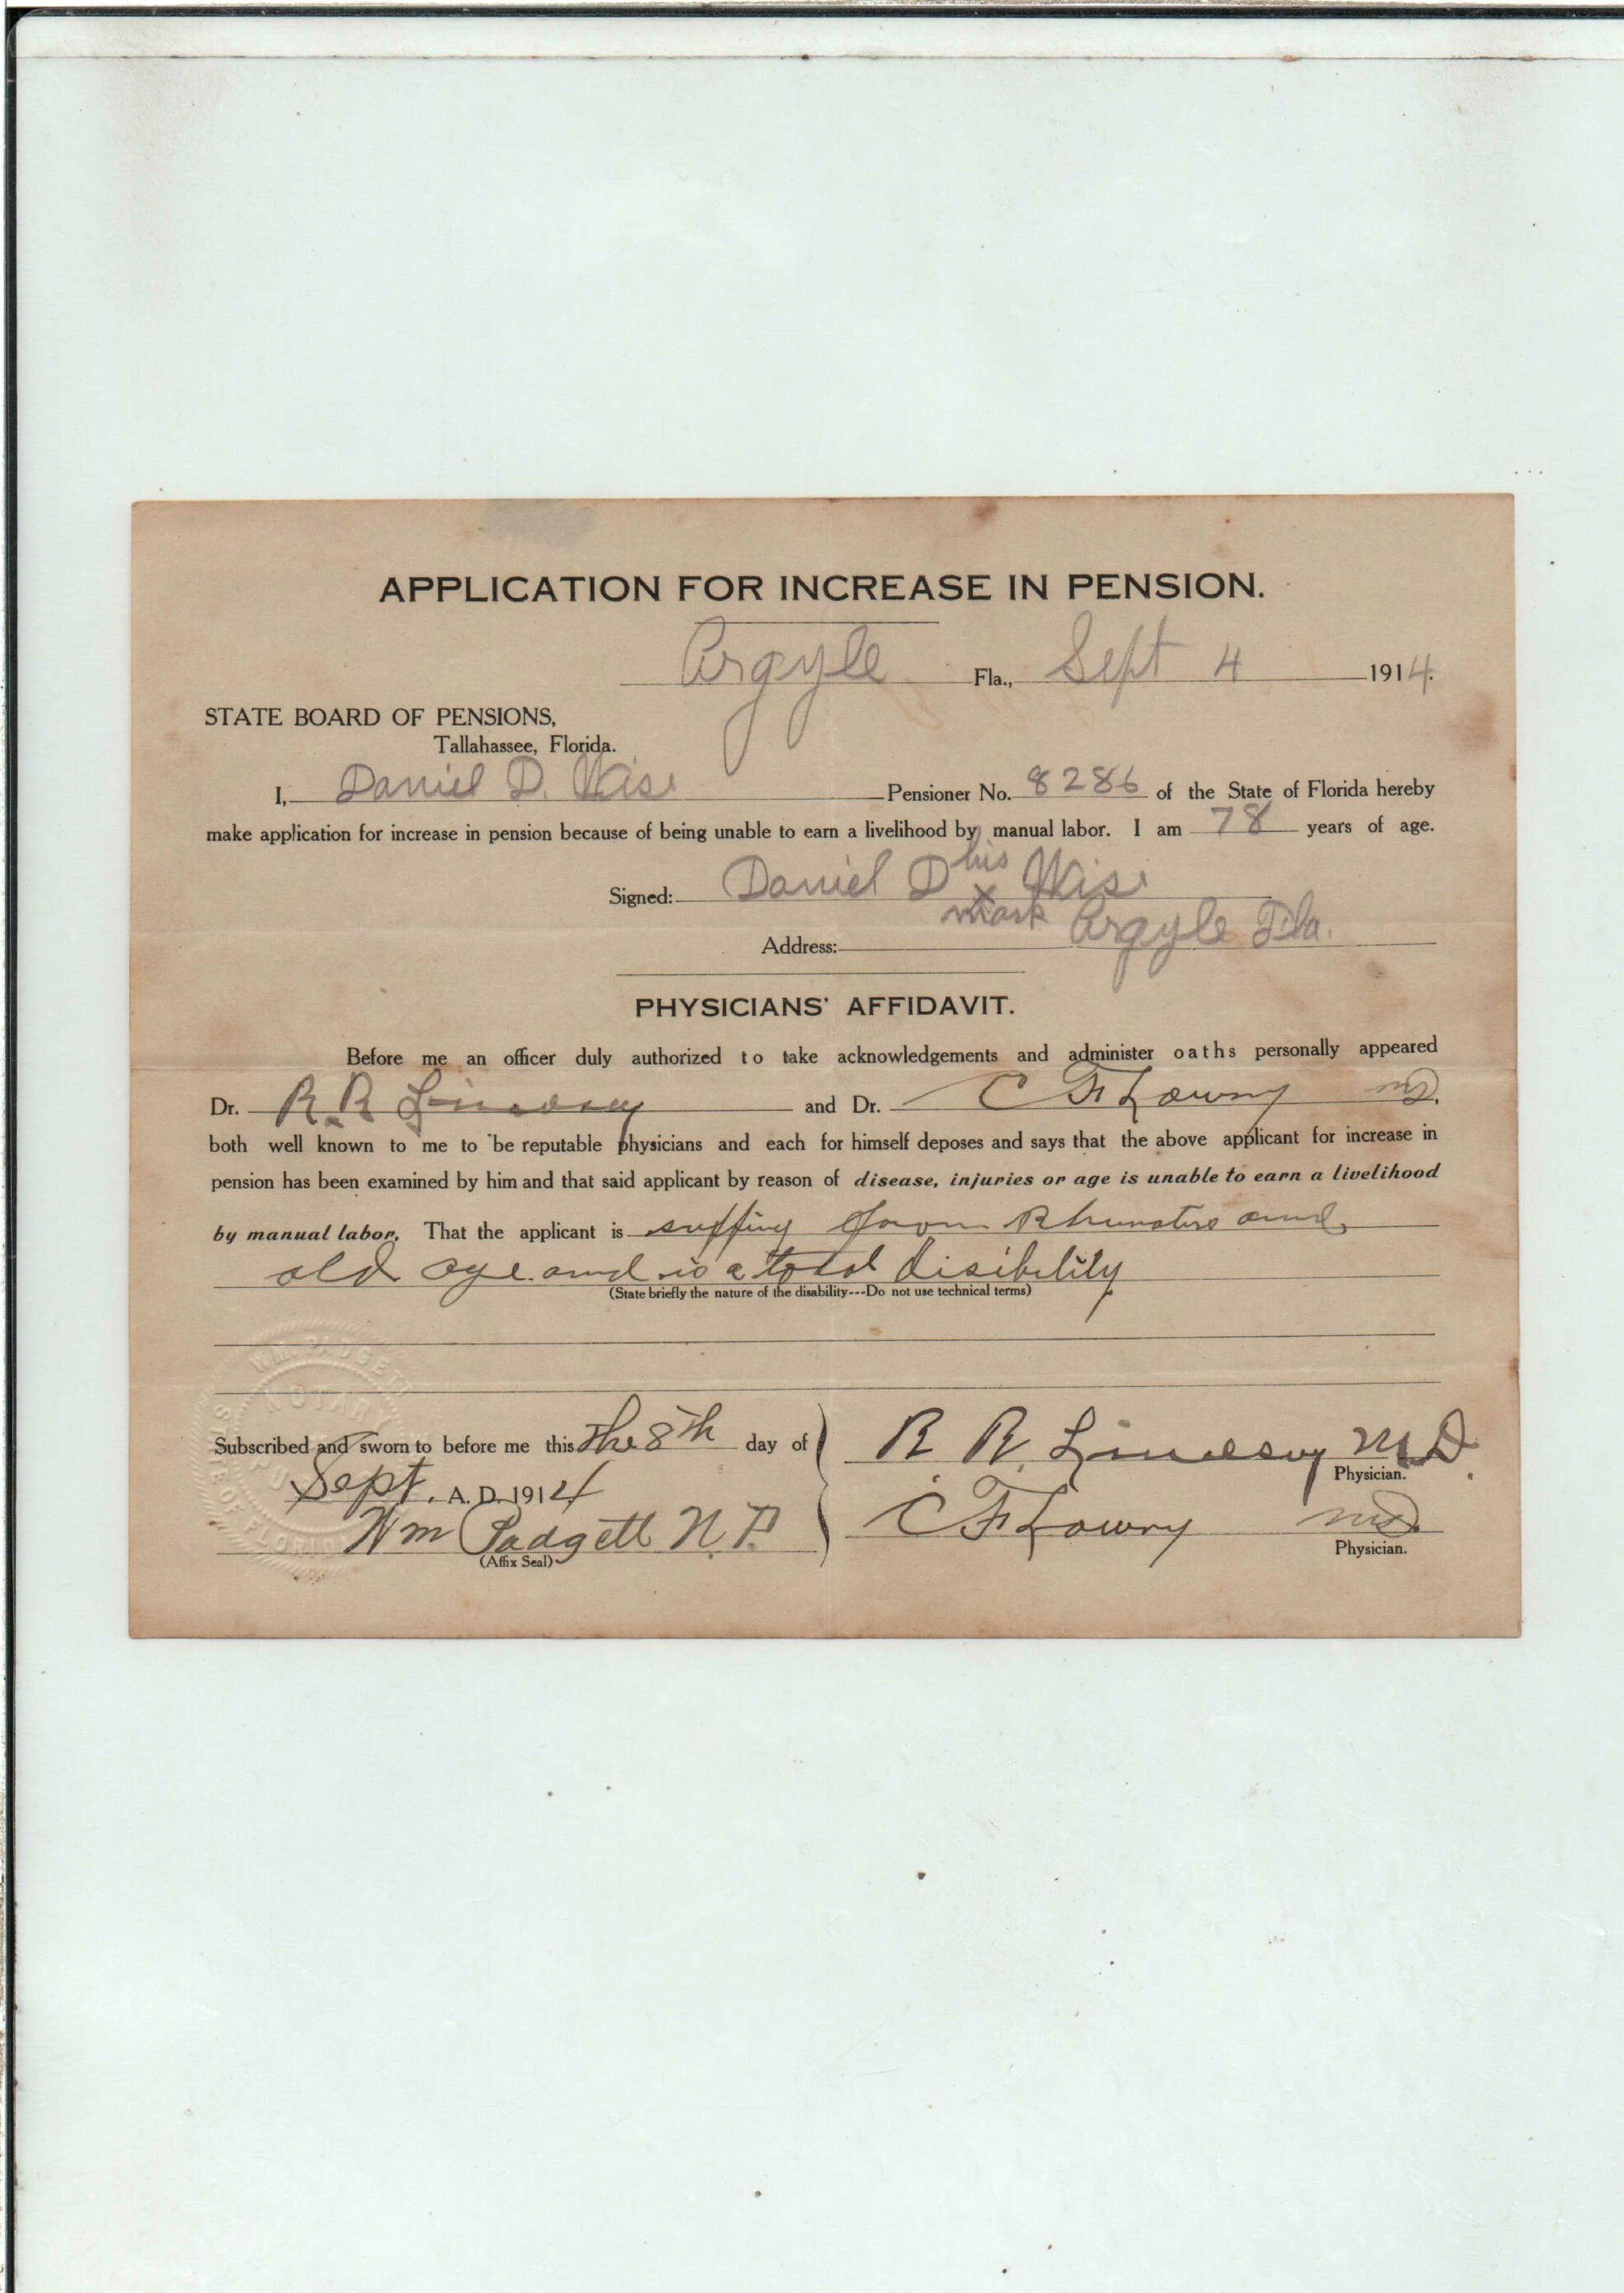 APPLICATION FOR INCREASE IN PENSION.
Argyle Fla., Sept 4 1914.
STATE BOARD OF PENSIONS,
Tallahassee, Florida.
I, Daniel D. Wise Pensioner No. 8286 of the State of Florida hereby
make application for increase in pension because of being unable to earn a livelihood by manual labor. I am 78 years of age.
his
Signed: Daniel D x Wise
mark
Address: Argyle Fla.
PHYSICIANS' AFFIDAVIT.
Before me an officer duly authorized to take acknowledgements and administer oaths personally appeared
Dr. R. R. Lindsey and Dr. C F Lowry MD.
both well known to me to be reputable physicians and each for himself deposes and says that the above applicant for increase in
pension has been examined by him and that said applicant by reason of disease, injuries or age is unable to earn a livelihood
by manual labor. That the applicant is suffing from and
old age and is a total disibility
(State briefly the nature of the disability---Do not use technical terms)
Subscribed and sworn to before me this the 8th day of
Sept. A. D. 1914
Wm Padgett N. P.
(Affix Seal)
R R. Lindsey M D.
Physician.
C F Lowry MD
Physician.
WM. PADGETT
NOTARY
STATE OF FLORIDA